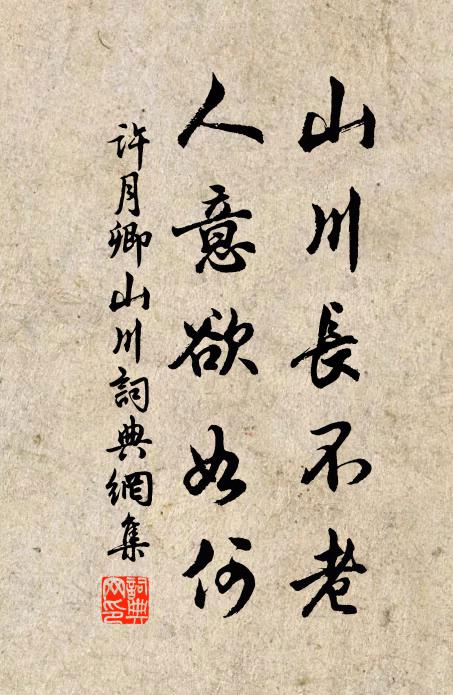 山川長不老
人意欲如何
許月卿山川詞典網集
詞典網印